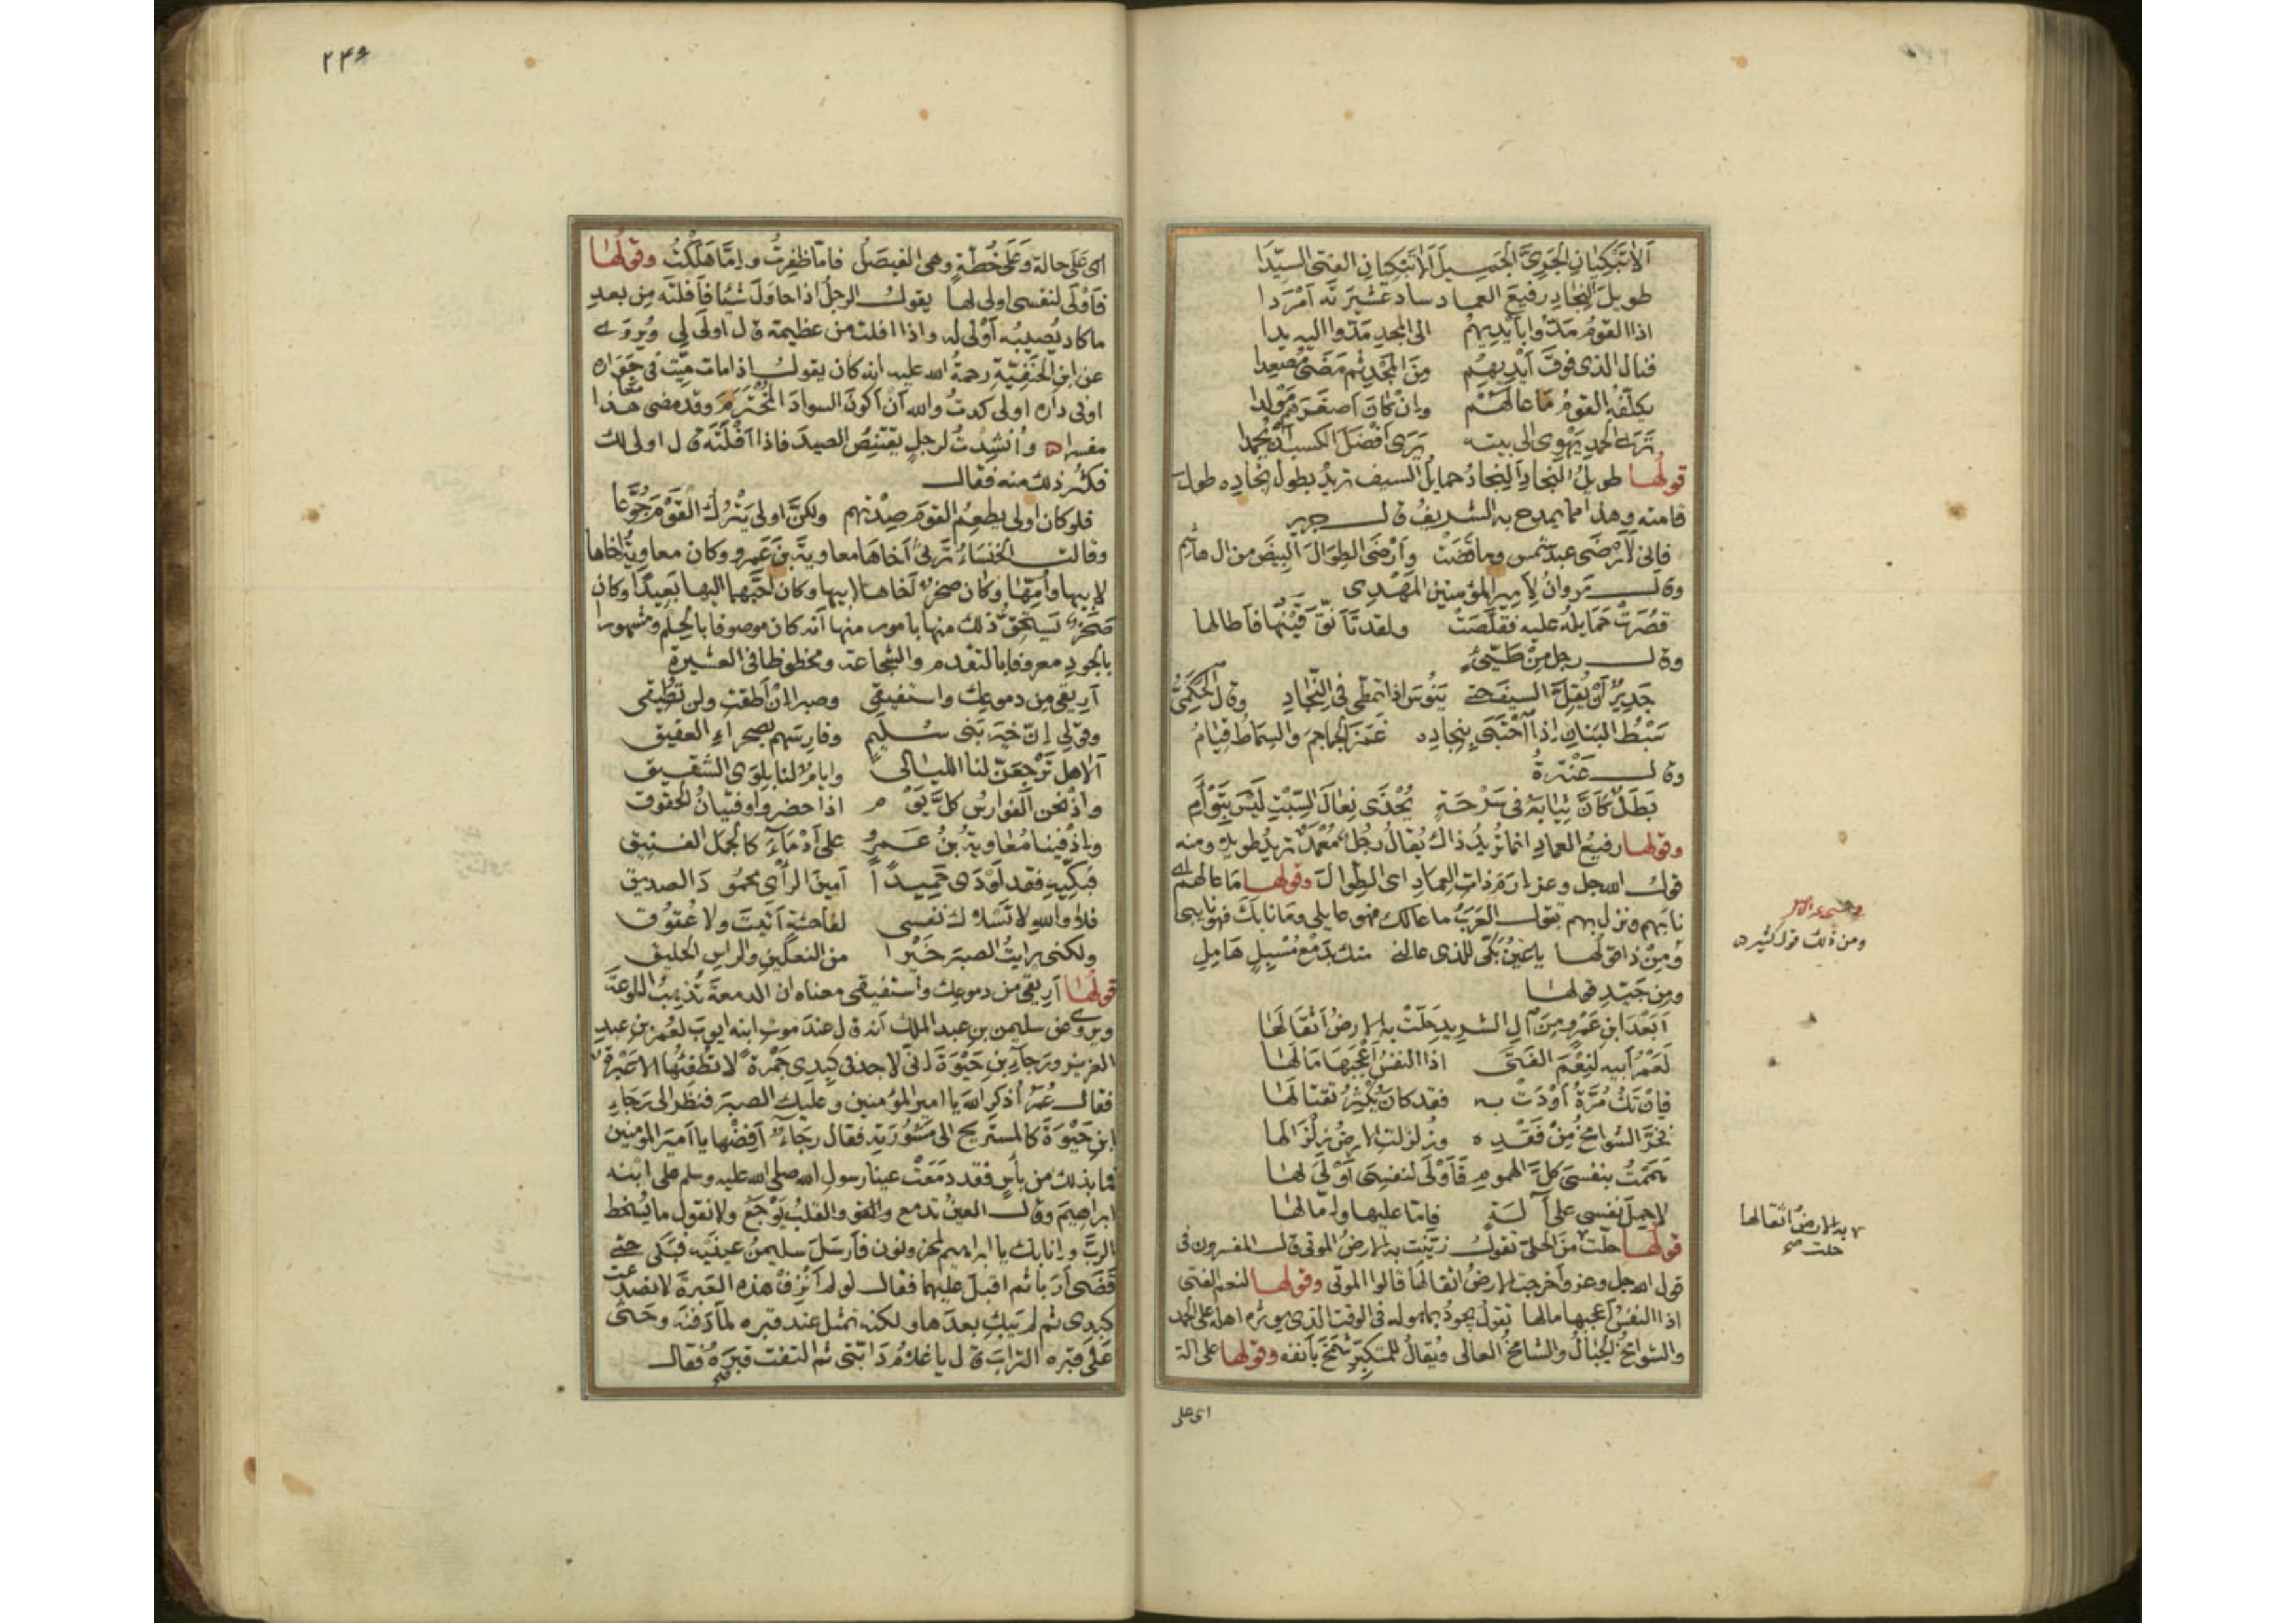 ألا تبكيان الجرىَّ الجميل ألا تبكيان الفتى السيّدا
طويلَ النِجادِ رفيعَ العماد سادَ عشيرتَه أمْرَدا
اذا القومُ مَدّوا بأيْديهمُ الى المجدِ مَدّ واليه يدا
فنال الذى فوقَ أيْديهمُ مِنَ المَجْدِ ثم مَضَى مُصْعِدا
يكلّفُه القومُ مَا عالَهُم وانْ كانَ أصغرَهم مَوْلدا
تَرى الحمدَ يَهْوى الى بيته يَرَى أفْضَلَ الكسبِ أنْ يُحمدا
قولُها طويلُ النِجادِ النِجادُ حمايلُ السيف تريدُ بطولِ نجاده طول
قامته وهذا مما يمدح به الشريفُ قال جرير
فإنى لَأرضَى عبدَ شمس وما قضَتْ وأرْضَى الطِوالَ البِيضَ من ال هاشم
وقال مَروانُ لأميرِ المؤمنين المهْدِى
قصُرَتْ حَمايلُه عليه فقلّصَتْ ولقد تأنّقَ قَيْنُها فأطالها
وقال رجل مِنْ طَيّئٍ
جَديرٌ أنْ يُقِلَّ السيفَ حتى يَنُوسَ اذا تمطّى فى النِّجادِ وقال الحَكَمِىُّ
سَبْطُ البَنانِ إذا احْتَبَى بِنِجادِه غَمَرَ الجماجمَ والسِماطُ قيامُ
وقال عَنْترةُ
بَطَلٌ كأنَّ ثِيابَهُ فى سَرْحَةٍ يُحْذَى نِعالَ السِّبْتِ لَيْسَ بِتَوْأمِ
وقولها رفيعُ العمادِ انما تُريدُ ذاك يُقالُ رجُلٌ مُعْمَدٌ تريدُ طويلٌ ومنه
قولُ الله جل وعز إرَمَ ذاتِ العِمَادِ اى الطِوالَ وقولها مَا عالهم اى
نابَهم ونزل بهم تقول العَرَبُ ما عالك فهو عايلى ومَا نابَكَ فهو نايبى
ومِنْ ذا قولُها يا عَيْنُ بَكّى للذى عالنى منك بدَمْعٍ مُسْبِلٍ هَامِلِ
ومِن جَيّدِ قولها
أبَعْدَ ابنِ عَمْرٍو مِنَ آلِ الشريدِ حَلّتْ به الأرضُ أثقَالَها
لَعَمْرُ أبيه لنِعْمَ الفَتَى اذا النفسُ أعْجَبَها مَالَها
فإنْ تَكُ مُرَّةُ أوْدَتْ به فقد كانَ يُكْثِرُ تقتَالَها
فخَرَّ الشوامخُ مِنْ فَقْدِه وزُلزِلتِ الأرضُ زِلْزَالَها
هَمَمْتُ بنفسىَ كلَّ الهموم فَأوْلَى لنفسِىَ أوْلَى لها
لأحمِلَ نفسى على آلَةٍ فإمّا عليها وإمّا لها
قولُها حلّت من الحَلْى تقولُ زيّنت به الأرضُ الموتى قال المفسرون فى
قول الله جل وعز وأخرجت الأرضُ اثقالَها قالوا الموتى وقولها لنعم الفتى
اذا النفسُ أعجبها مالها تقول يجودُ بما هو له فى الوقت الذى يوثره اهله على الحمد
والشوامخُ الجبالُ والشامخُ العالى ويُقالُ للمتكبّرِ شَمَخَ بأنفه وقولها على الة
ومن ذلك قول كثيره
به الأرضُ اثقالها
حلت صح
اى على
٢٤٩
اى عَلَى حالة وَعَلَى خُطّةٍ وهى الفيصَلُ فامّا ظفِرتُ وإمّا هَلَكْتُ وقولُها
فَأوْلَى لنفسى اولى لها يقول الرجلُ اذا حاوَلَ شيئا فأفلتَه مِن بعدِ
ما كاد يُصيبُه أوْلى له واذا افلت من عظيمة قال اولَى لى ويُروَى
عن ابنِ الحَنَفيّةِ رحمةُ الله عليه انه كان يقول اذا مات مَيّت فى جِوَاره
او فى داره اولى لى كدتُ والله أنْ أكونَ السوادَ المُخْتَرَمَ وقد مضى هذا
مفسرا ه وأُنشِدتُ لرجلٍ يقتنِصُ الصيدَ فاذا أفْلَتَه قال اولى لك
فكثُر ذلك منه فقال
فلو كان اولى يطعِمُ القومَ صِدْتهم ولكنَّ اولى يَتْرُكُ القَوْمَ جُوّعا
وقالت الخنسَاءُ تَرثى أخاهَا معاويةَ بنَ عَمرو وكان معاويةُ اخاها
لابيها وأمِّها وكان صخرٌ أخاها لابيها وكان أحَبَّهما اليها بَعِيدًا وكان
صَخْرٌ يَستحِقُّ ذلك منها بامور منها أنه كان موصوفا بالحِلْم ومشهورا
بالجودِ معروفا بالتقدم والشجاعة ومحظوظا فى العشيرة
أريقى مِن دموعِك واستفيقى وصبرا إنْ أطقتِ ولن تُطيقى
وقولى إنّ خيرَ بَنى سُليمٍ وفارسَهم بصحراءِ العقيق
ألا هل تَرْجعَنّ لنا الليالى وايامٌ لنا بِلِوَى الشقيق
واذْ نحن الفوارسُ كلَّ يَوْم اذا حضروا وفتيانُ الحقوق
وإذْ فينا مُعاويةُ بنُ عَمرٍو على أدْمَاءَ كالجمل الفنيق
فبَكّيهِ فقد أوْدَى حَمِيدًا أمينَ الرأى محمودَ الصديق
فلا والله لا تَسْلاك نفسى لفاحشةٍ أتيتَ ولا عُقوق
ولكنى رايتُ الصبرَ خَيْرا من النعلَينِ والراسِ الحليق
قولُها أريقى من دموعِك واستفيقى معناه ان الدمعةَ تُذْهِبُ اللوعةَ
ويروى عن سليمن بن عبد الملك أنه قال عند موت ابنه ايوبَ لعُمرَ بنِ عبدِ
العزيز ورَجاءِ بنِ حَيْوَةَ انّى لاجد فى كبدى جَمْرةً لا تطْفئُها الا عَبْرةٌ
فقال عُمرُ أذكرِ اللهَ يا امير المؤمنين وعليك الصبرَ فنظر الى رَجاءِ
ابنِ حَيْوَةَ كالمستريح الى مَشُورَتِه فقال رجاءٌ أفِضْها يا أميرَ المومنين
فما بذلك من بأسٍ فقد دمَعَتْ عينا رسولِ الله صلى الله عليه وسلم على ابنه
ابراهيمَ وقال العينُ تدمع والقلبُ يَوْجَعُ ولا نقول ما يُسْخط
الربَّ وإنا بك يا ابراهيم لمحزونون فأرسَلَ سليمنُ عينَيه فبكى حتى
قَضَى أرَبا ثم اقبل عليهما فقال لو لم أنزِفْ هذه العَبرةَ لانصدعت
كبدى ثم لم يَبكِ بعدَها ولكنه تمثل عند قبره لمّا دَفَنه وحَثَى
عَلى قبره الترابَ قال يا غلامُ دَابّتى ثم التفت قبرَهُ فقال